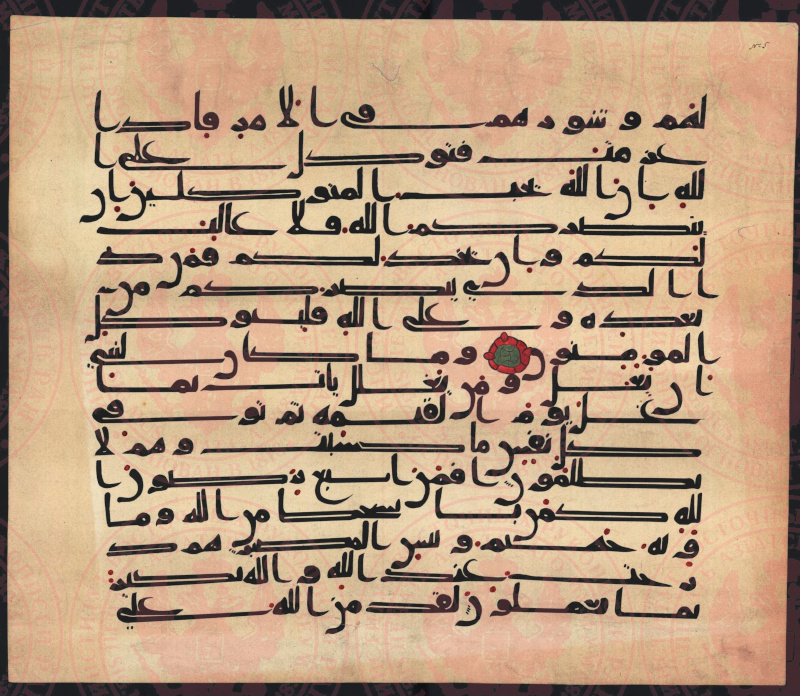 № 5
لهم وشورهم في الامر فاذا
عزمت فتوكل على ا
لله ان الله يحب المتوكلين ان
ينصركم الله فلا غالب
لكم وان يخذلكم فمن ذ
ا الذي ينصركم من
بعده وعلى الله فليتوكل
المومنون وما كان لنبي
ان يغل ومن يغلل يات بما
غل يوم القيمة ثم توفى
كل نفس ما كسبت وهم لا
يظلمون افمن اتبع رضون ا
لله كمن با بسخط من الله وما
ويه جهنم وبيس المصير هم د
رجت عند الله والله بصير
بما يعملون لقد من الله على